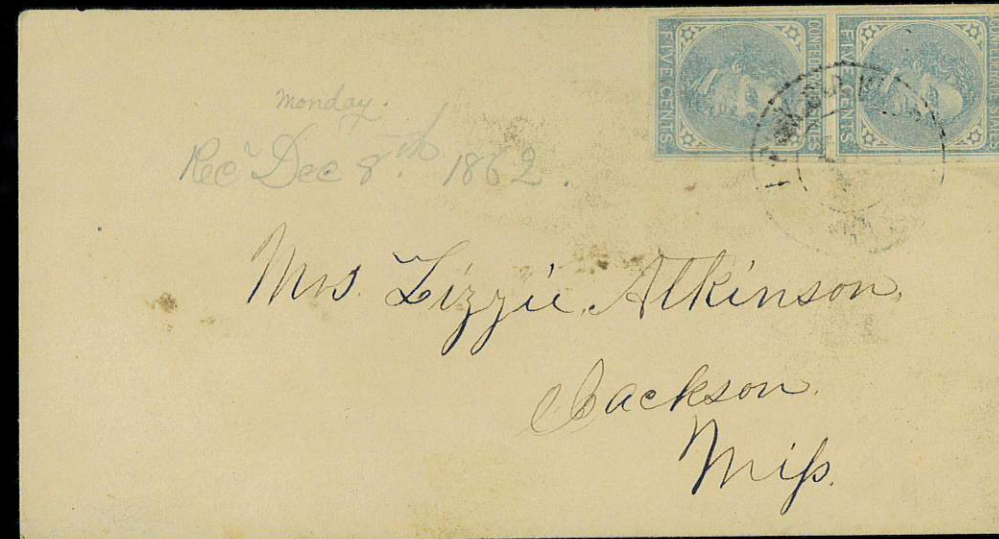 FIVE CENTS
CONFEDERATE STATES
FIVE CENTS
CONFEDERATE STATES
Monday.
Rec^d Dec 8^th. 1862.
Mrs. Lizzie Atkinson,
Jackson.
Miſs.